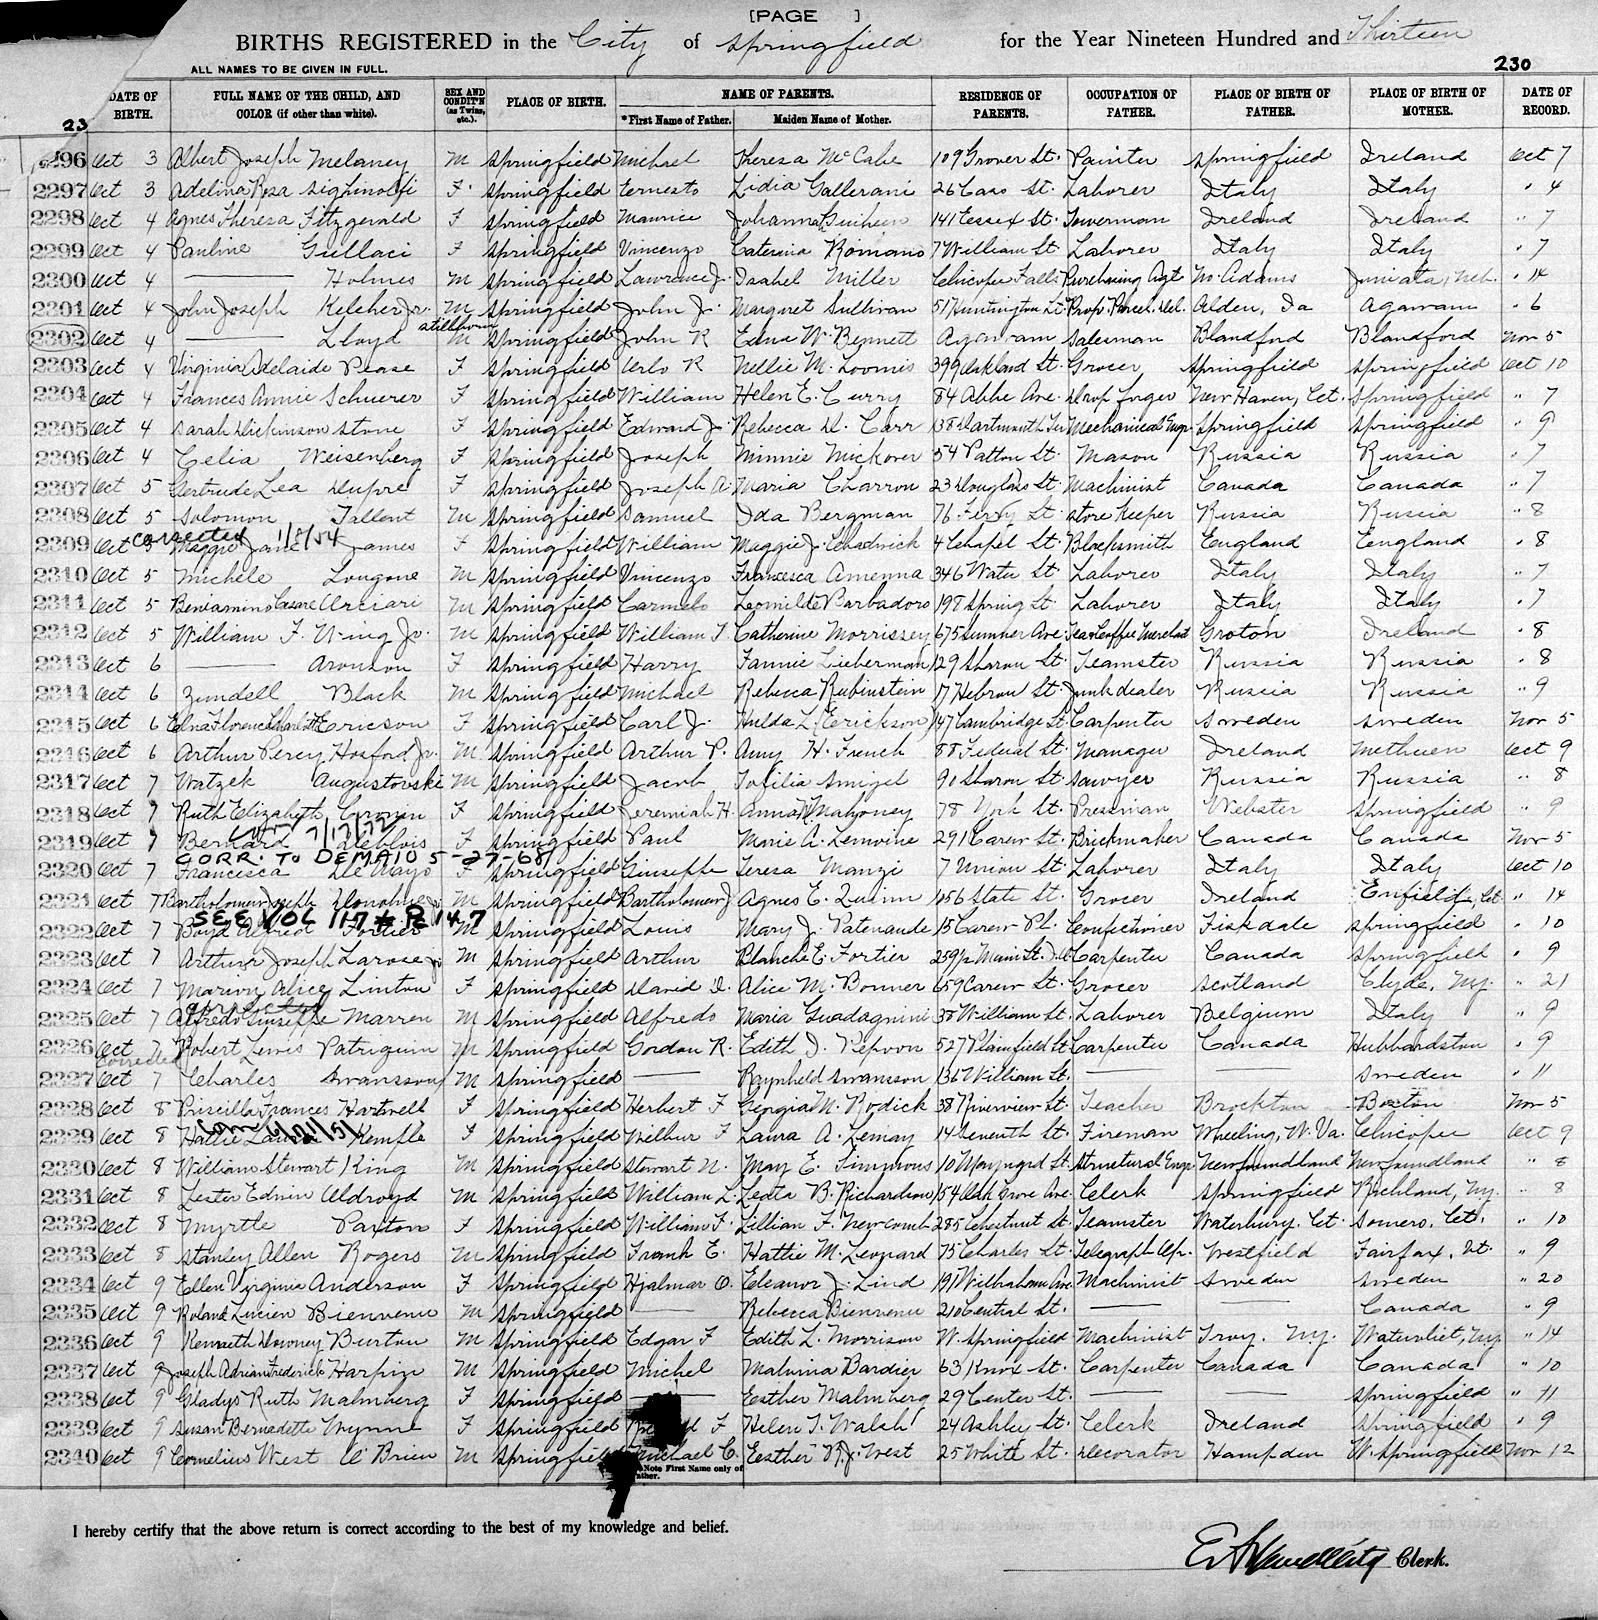 [PAGE ]
BIRTHS REGISTERED in the City of Springfield for the Year Nineteen Hundred and Thirteen
ALL NAMES TO BE GIVEN IN FULL.
230
23
DATE OF BIRTH. FULL NAME OF THE CHILD, AND COLOR (if other than white). SEX AND CONDIT'N (as Twins, etc.). PLACE OF BIRTH. NAME OF PARENTS. *First Name of Father. Maiden Name of Mother. RESIDENCE OF PARENTS. OCCUPATION OF FATHER. PLACE OF BIRTH OF FATHER. PLACE OF BIRTH OF MOTHER. DATE OF RECORD.
2296 Oct 3 Albert Joseph Melaney M Springfield Michael Theresa McCabe 109 Grover St. Painter Springfield Ireland Oct 7
2297 Oct 3 Adelina Rosa Sighinolfi F Springfield Ernesto Lidia Gallerani 26 Cass St. Laborer Italy Italy " 4
2298 Oct 4 Agnes Theresa Fitzgerald F Springfield Maurice Johanna 141 Essex St. Towerman Ireland Ireland " 7
2299 Oct 4 Pauline Gullaci F Springfield Vincenzo Caterina Romano 7 William St Laborer Italy Italy " 7
2300 Oct 4 —— Holmes M Springfield Lawrence J. Isabel Miller Chicopee Falls Purchasing Agt No. Adams Juniata, Neb. " 14
2301 Oct 4 John Joseph Keleher Jr. M Springfield John J. Margaret Sullivan 51 Huntington St. Prop. Parcel Del. Alden, Ia Agawam " 6
stillborn
2302 Oct 4 —— Lloyd M Springfield John R Edna W. Bennett Agawam Salesman Blandford Blandford Nov 5
2303 Oct 4 Virginia Adelaide Pease F Springfield Arlo R Nellie M. Loomis 399 Oakland St. Grocer Springfield Springfield Oct 10
2304 Oct 4 Frances Annie Schuerer F Springfield William Helen E. Curry 84 Abbe Ave. Drop forger New Haven, Ct. Springfield " 7
2305 Oct 4 Sarah Dickinson Stone F Springfield Edward J. Rebecca D. Carr 138 Dartmouth Ter Mechanical Engr Springfield Springfield " 9
2306 Oct 4 Celia Weisenberg F Springfield Joseph Minnie Mickover 54 Patton St. Mason Russia Russia " 7
2307 Oct 5 Gertrude Lea Dupre F Springfield Joseph A. Maria Charron 23 Douglass St. Machinist Canada Canada " 7
2308 Oct 5 Solomon Tallent M Springfield Samuel Ida Bergman 76 Ferry St Store Keeper Russia Russia " 8
corrected 1/8/54
2309 Oct 5 Maggie Jane James F Springfield William Maggie J. Chadwick 4 Chapel St. Blacksmith England England " 8
2310 Oct 5 Michele Longone M Springfield Vincenzo Francesca Amenna 346 Water St Laborer Italy Italy " 7
2311 Oct 5 Beniamino Cesare Arciari M Springfield Carmelo Leonilde Barbadoro 198 Spring St. Laborer Italy Italy " 7
2312 Oct 5 William F. Wing Jr. M Springfield William F. Catherine Morrissey 675 Sumner Ave. Tea & Coffee Merchant Groton Ireland " 8
2313 Oct 6 —— Aronson F Springfield Harry Fannie Lieberman 129 Sharon St. Teamster Russia Russia " 8
2314 Oct 6 Zundell Black M Springfield Michael Rebecca Rubinstein 17 Hebron St. Junk dealer Russia Russia " 9
2315 Oct 6 Edna Florence Charlotte Ericson F Springfield Carl J. Hulda L. Erickson 147 Cambridge St. Carpenter Sweden Sweden Nov 5
2316 Oct 6 Arthur Percy Hosford Jr. M Springfield Arthur P. Amy H. French 88 Federal St. Manager Ireland Methuen Oct 9
2317 Oct 7 Watzek Augustovski M Springfield Jacob Tofilia Smigel 90 Sharon St Sawyer Russia Russia " 8
2318 Oct 7 Ruth Elizabeth Cronin F Springfield Jeremiah H. Anna Mahoney 78 York St. Pressman Webster Springfield " 9
7/17/72
2319 Oct 7 Bernard Leblois F Springfield Paul Marie A. Lemoine 291 Carew St. Brickmaker Canada Canada Nov 5
CORR. TO DEMAIO 5-27-68
2320 Oct 7 Francisca De Mayo F Springfield Giuseppe Teresa Manzi 7 Union St. Laborer Italy Italy Oct 10
2321 Oct 7 Bartholomew Joseph Donohue Jr M Springfield Bartholomew J Agnes E. Quinn 1056 State St. Grocer Ireland Enfield, Ct. " 14
SEE VOL 117 * P. 147
2322 Oct 7 Boyd Alfred Fortier M Springfield Louis Mary J. Patenaude 15 Carew Pl. Confectioner Fiskdale Springfield " 10
2323 Oct 7 Arthur Joseph Larose Jr M Springfield Arthur Blanche E. Fortier 259½ Main St. Carpenter Canada Springfield " 9
2324 Oct 7 Marion Alice Linton F Springfield David D. Alice M. Bonner 659 Carew St. Grocer Scotland Clyde, N.y. " 21
corrected
2325 Oct 7 Alfredo Giuseppe Marren M Springfield Alfredo Maria Guadagnini 38 William St. Laborer Belgium Italy " 9
2326 Oct 7 Robert Lewis Patriquin M Springfield Gordon R. Edith I. Vepoon 527 Plainfield St Carpenter Canada Hubbardston " 9
corrected
2327 Oct 7 Charles Swansson M Springfield —— Raynheld Swanson 136 William St. —— —— Sweden " 11
2328 Oct 8 Priscilla Frances Hartwell F Springfield Herbert F Georgia N. Rodick 38 Riverview St. Teacher Brockton Boston Nov 5
2329 Oct 8 Hattie Laura Kemple F Springfield Wilbur F Laura A. Lemay 14 Seventh St. Fireman Wheeling, W. Va. Chicopee Oct 9
2330 Oct 8 William Stewart King M Springfield Stewart N. May E. Simmons 10 Maynard St. Structural Engr Newfoundland Newfoundland " 8
2331 Oct 8 Lester Edwin Oldroyd M Springfield William L. Leota B. Richardson 154 Oak Grove Ave. Clerk Springfield Richland, N.y. " 8
2332 Oct 8 Myrtle Paxton F Springfield William F. Lillian F. Newcomb 285 Chestnut St. Teamster Waterbury, Ct. Somers, Ct. " 10
2333 Oct 8 Stanley Allen Rogers M Springfield Frank E. Hattie M. Leonard 75 Charles St. Telegraph Op. Westfield Fairfax, Vt. " 9
2334 Oct 9 Ellen Virginia Anderson F Springfield Hjalmar O. Eleanor J. Lind 197 Wilbraham Ave Machinist Sweden Sweden " 20
2335 Oct 9 Roland Lucien Bienvenu M Springfield —— Rebecca Bienvenu 210 Central St. —— —— Canada " 9
2336 Oct 9 Kenneth Downey Burton M Springfield Edgar F Edith L. Morrison W. Springfield Machinist Troy, N.y. Watervliet, N.y " 14
2337 Oct 9 Joseph Adrian Frederick Harpin M Springfield Michel Malvina Bardier 63 Knox St. Carpenter Canada Canada " 10
2338 Oct 9 Gladys Ruth Malmberg F Springfield —— Esther Malmberg 29 Center St. —— —— Springfield " 11
2339 Oct 9 Susan Bernadette Wynne F Springfield F Helen T. Walsh 24 Ashley St. Clerk Ireland Springfield " 9
2340 Oct 9 Cornelius West O'Brien M Springfield Michael C. Esther N. J. West 25 White St. Decorator Hampden W. Springfield Nov 12
Note First Name only of Father.
I hereby certify that the above return is correct according to the best of my knowledge and belief.
Clerk.